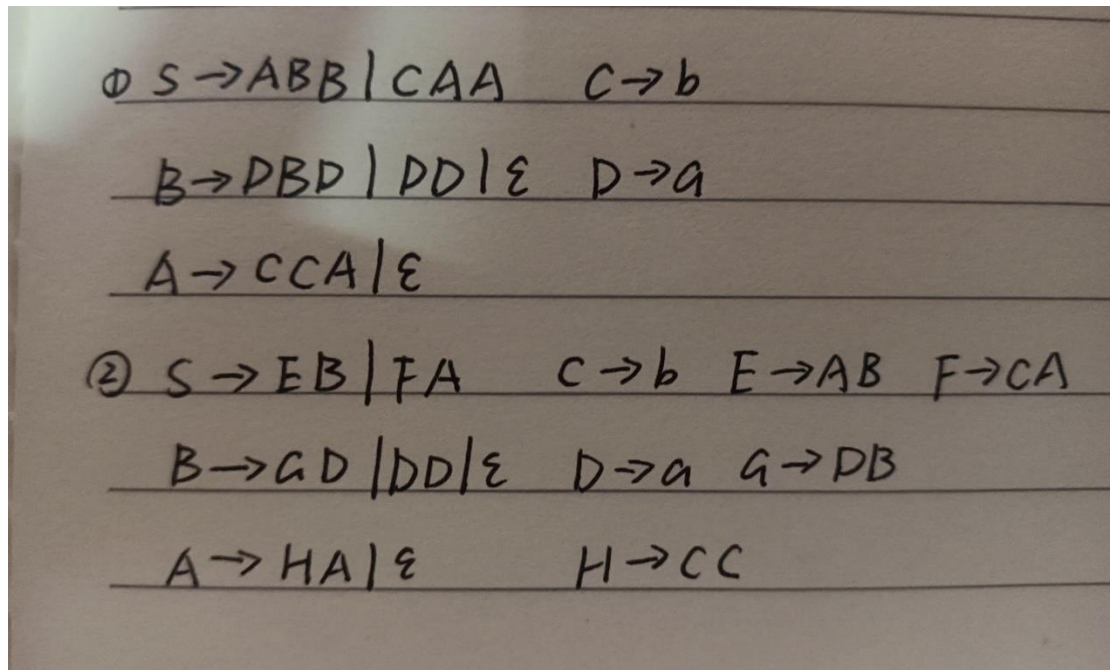 ① S→ABB|CAA C→b
B→DBD|DD|ε D→a
A→CCA|ε
② S→EB|FA C→b E→AB F→CA
B→GD|DD|ε D→a G→DB
A→HA|ε H→CC